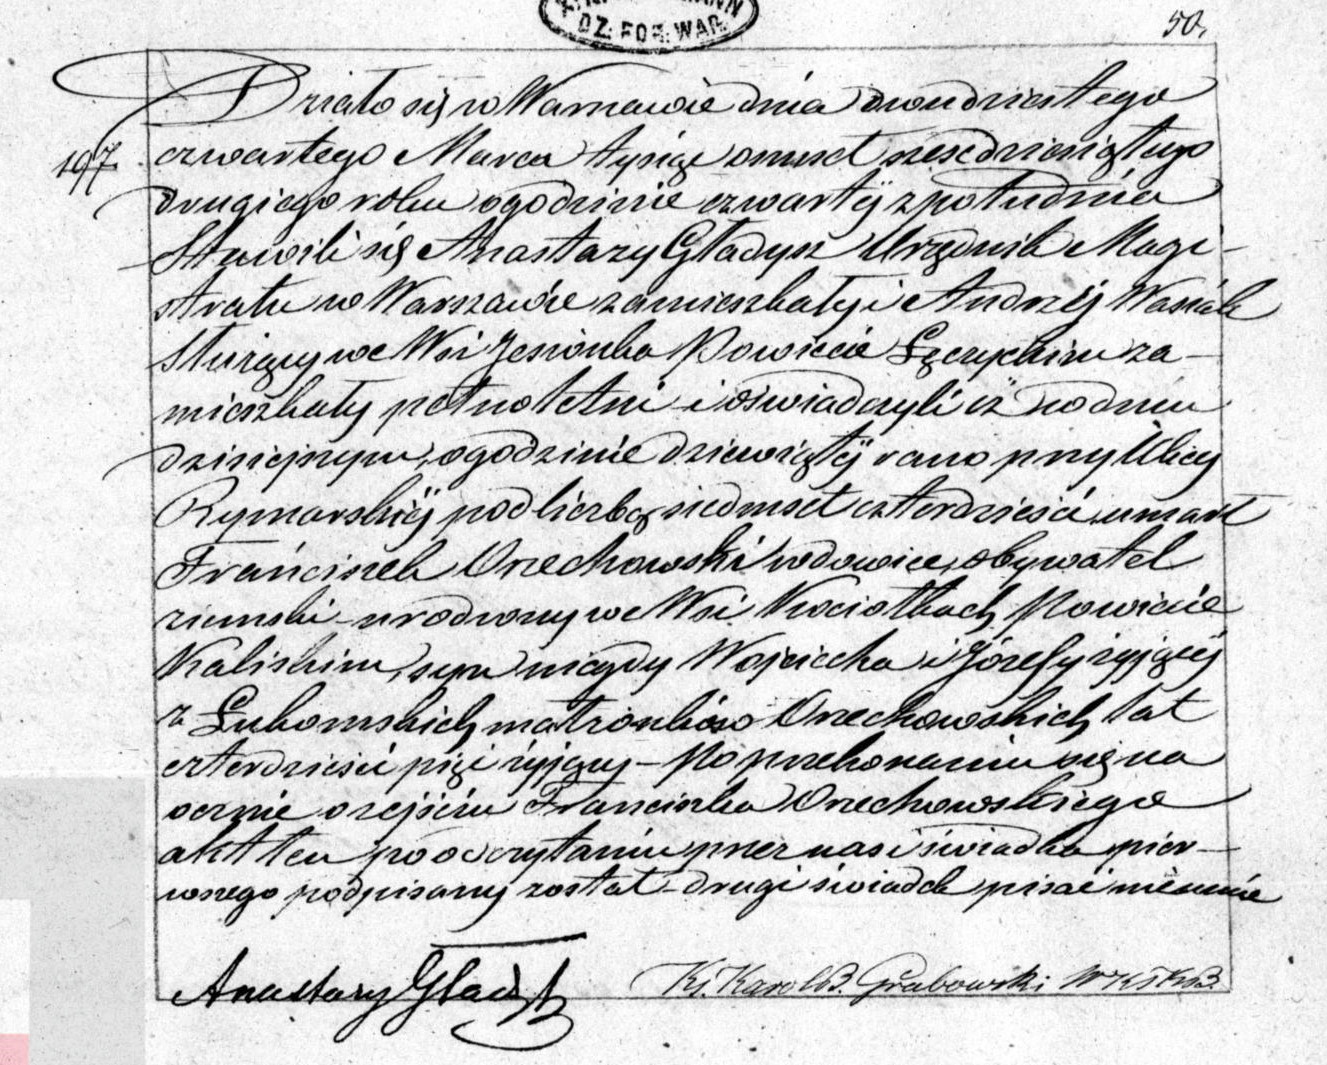 DZ. FOR. WAR.
50.
Działo się w Warszawie dnia dwudziestego
197. czwartego Marca tysiąc ośmset sześćdziesiątego
drugiego roku o godzinie czwartéj z południa
Stawili się Anastazy Gładysz Urzędnik Magi-
stratu w Warszawie zamieszkały i Andrzéj Wasiak
Służący we Wsi Jesionka Powiecie Łęczyckim za-
mieszkały pełnoletni i oświadczyli iż w dniu
dzisiejszym, o godzinie dziewiątéj rano przy Ulicy
Rymarskiéj pod liczbą siedmset czterdzieści, umarł
Franciszek Orzechowski wdowiec, obywatel
ziemski urodzony we Wsi Kociołkach Powiecie
Kaliskim, syn niegdy Wojciecha i Józefy żyjącéj
z Łukomskich małżonków Orzechowskich lat
czterdzieści pięć żyjący – Po przekonaniu się na
ocznie o zejściu Franciszka Orzechowskiego
akt ten po odczytaniu przez nas i świadka pier-
wszego podpisany został drugi świadek pisać nieumie
Anastazy Gładysz Ks. Karol B. Grabowski